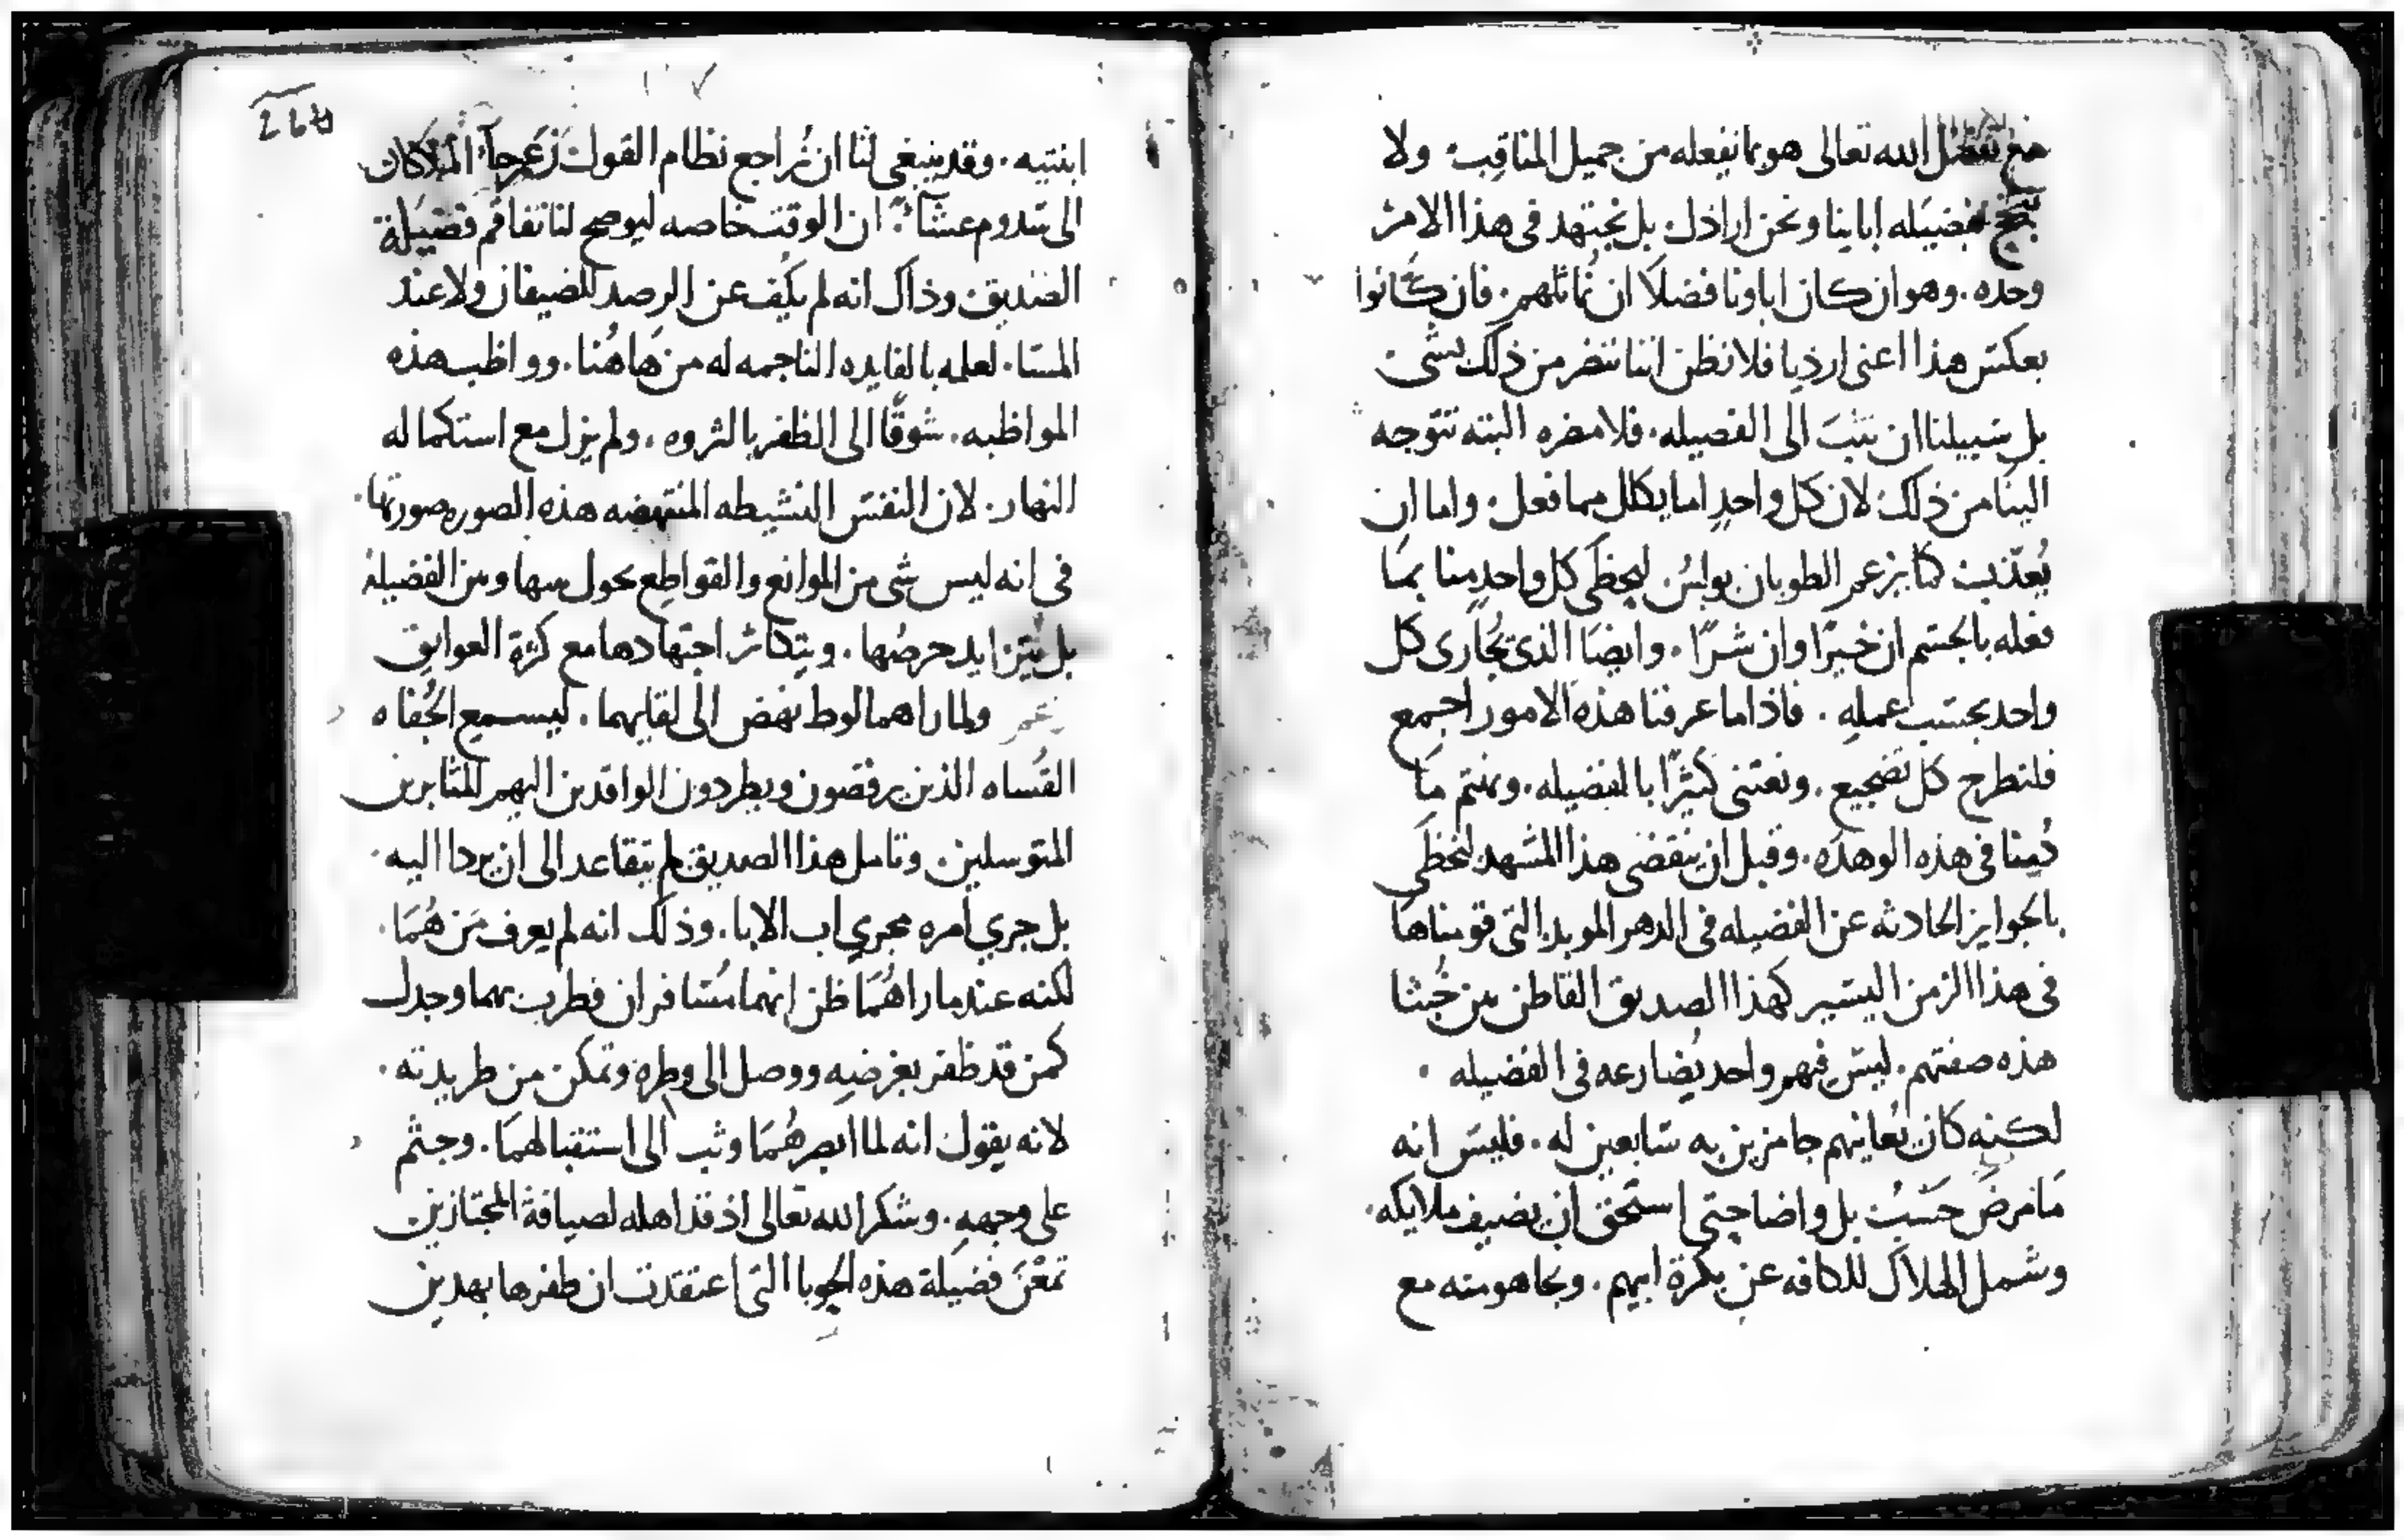 مع تفضل الله تعالى هو ما نفعله من جميل المناقب ولا
نبجح بفضيله اباينا ونحن اراذل بل نجتهد فى هذا الامر
وحده . وهو ان كان اباونا فضلا ان نماثلهم . فان كانوا
بعكس هذا اعنى ارديا فلا نظن اننا نتضر من ذلك بشى
بل سبيلنا ان نثب الى الفضيله . فلا مضره البته تتوجه
الينا من ذلك لان كل واحد اما يكلل مما فعل . واما ان
يُعذب كما يزعم الطوبان بولس . ليحظى كل واحد منا بما
فعله بالجسم ان خيرًا وان شرًا . وايضا الذى يجازى كل
واحد بحسب عمله . فاذا ما عرفنا هذه الامور اجمع
فلنطرح كل تضجيع . ونعتنى كثيرًا بالفضيله . ونهتم ما
دُمنا فى هذه الوهده . وقبل ان ينقضى هذا المشهد لنحظى
بالجوايز الحادثه عن الفضيله فى الدهر الموبد التى قومناها
فى هذا الزمن اليسير كهذا الصديق القاطن بين خُبثا
هذه صفتهم . ليس فيهم واحد يُضارعه فى الفضيله .
لكنه كان يُعاينهم جامزين به سابعين له . فليس انه
مامرض حسبُ بل واضا حتى استحق ان يضيف ملايكه .
وشمل الهلاك للكافه عن بكرة ابيهم . ونجا هو منه مع
264
ابنتيه . وقد ينبغى لنا ان نُراجع نظام القول زعم جآ الملاكان
الى سدوم عشآءً . ان الوقت خاصه ليوضح لنا تفاقم فضيلة
الصديق وذاك انه لم يكف عن الرصد للضيفان ولا عند
المسا . لعلمه بالفايده الناجمه له من هاهُنا . وواظب هذه
المواظبه . شوقًا الى الظفر بالثروه . ولم يزل مع استكماله
النهار . لان النفس النشيطه المنتهضه هذه الصوره صورتها .
فى انه ليس شى من الموانع والقواطع يحول بينها وبين الفضيله
بل يتزايد حرصُها . ويتكاثر اجتهادها مع كثرة العوايق
زعم ولما راهما لوط نهض الى لقايهما . ليسمع الجُفاه
القُساه الذين يرفضون ويطردون الوافدين اليهم للمثابرين
المتوسلين . وتامل هذا الصديق لم يتقاعد الى ان يردا اليه .
بل جري امره مجري اب الابا . وذلك انه لم يعرف مَن هُمَا .
لكنه عندما راهُمَا ظن انهما مُسافران فطرب بهما وجدل
كمن قد ظفر بغرضه ووصل الى وطره وتمكن من طريدته .
لانه يقول انه لما ابصرهُمَا وثب الى استقبالهمَا . وجثم
على وجهه . وشكر الله تعالى اذ قد اهله لضيافة المجتازين
تمعّن فضيلة هذه الحوبا التى اعتقدت ان ظفرها بهذين